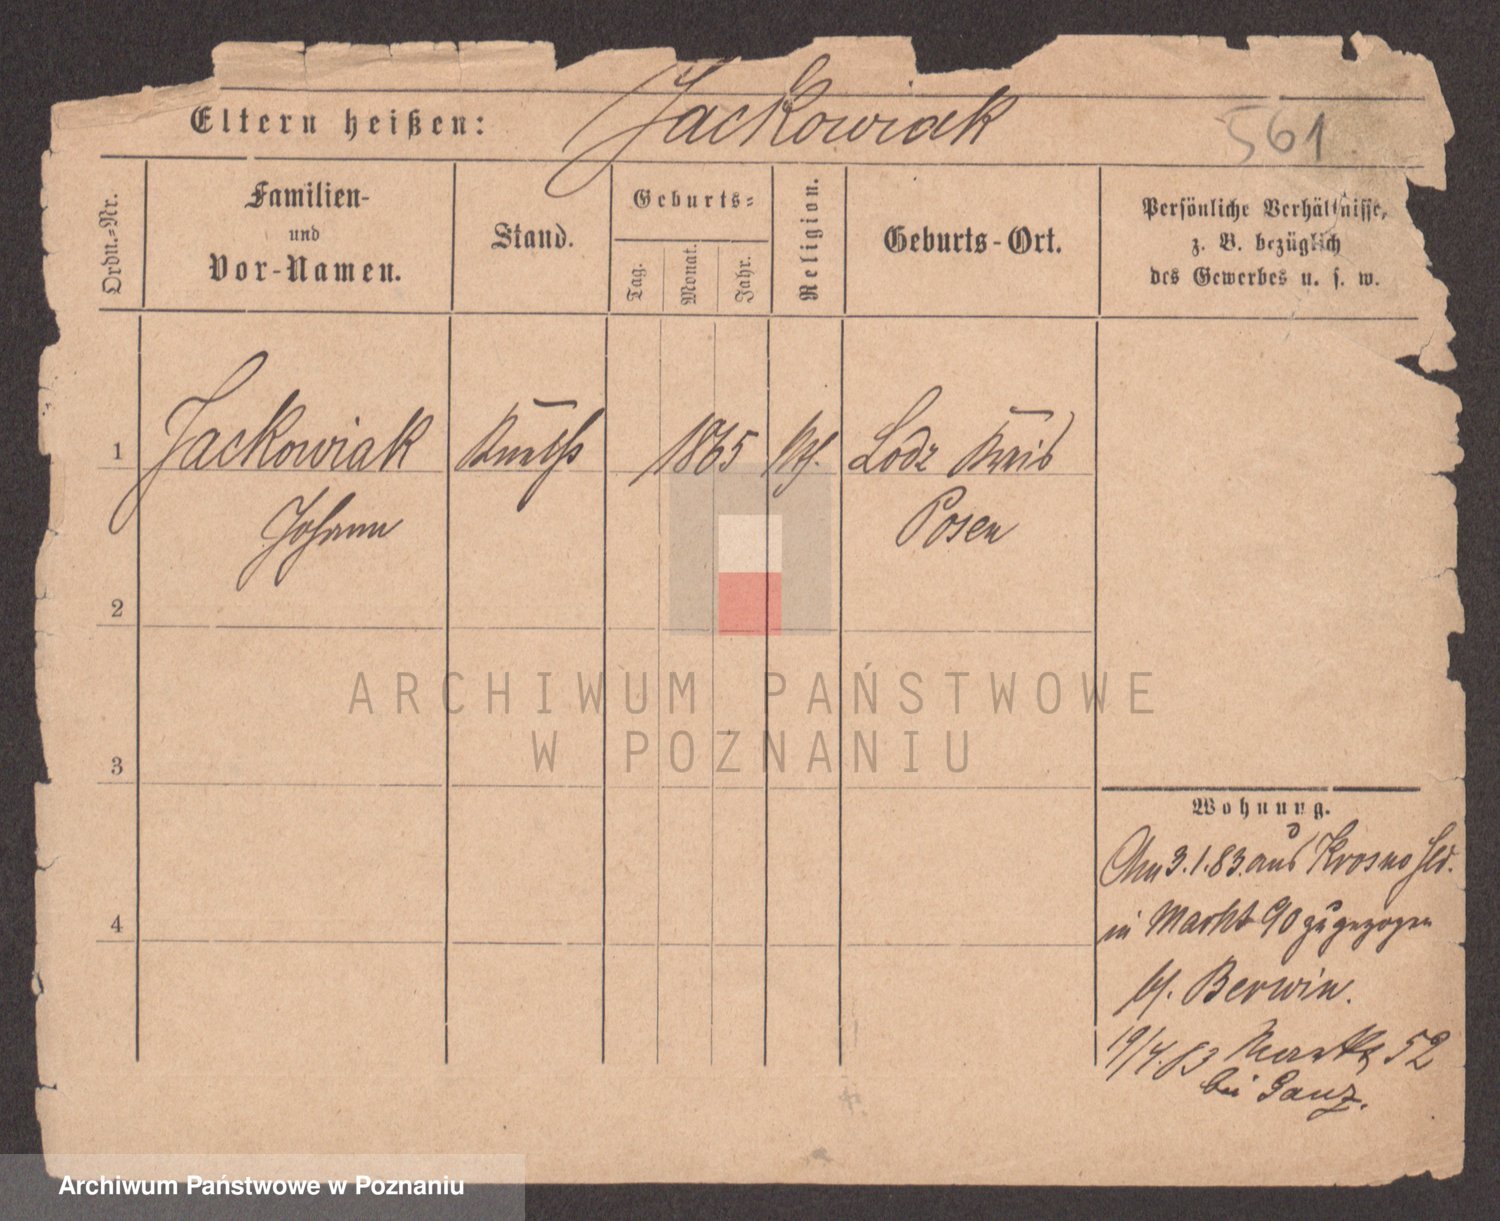 Eltern heißen: Jackowiak
561
Ordn.-Nr.
Familien-
und
Vor-Namen.
Stand.
Geburts-
Tag.
Monat.
Jahr.
Religion.
Geburts-Ort.
Persönliche Verhältnisse,
z. B. bezüglich
des Gewerbes u. s. w.
1 Jackowiak 1865 Lodz Kreis
Johann Posen
2
3
4
Wohnung.
Am 3.1.83. aus Krosno
in Markt 90 zugezogen
Berwin.
19/4.83 Markt 52
bei Ganz.
ARCHIWUM PAŃSTWOWE
W POZNANIU
Archiwum Państwowe w Poznaniu